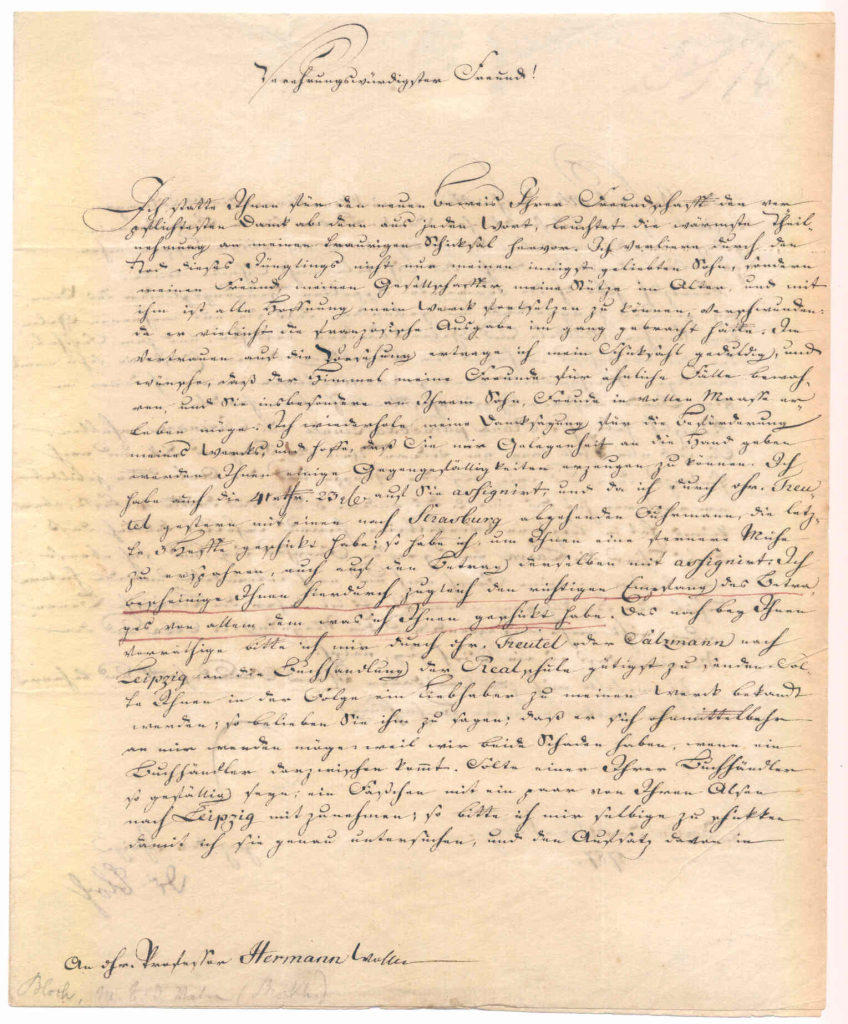 Verehrungswürdigster Freund!
Ich statte Ihnen für den neuen beweis Ihrer Freundschafft den ver
pflichtesten Dank ab denn aus jeden Wort, leuchtet die wärmste Theil-
nehmung an meinen traurigen Schicksal hervor. Ich verliere durch den
Tod dieses Jünglings nicht nur meinen innigst geliebten Sohn, sondern
meinen Freund, meinen Gesellschaffter, meine Stütze im Alter, und mit
ihm ist alle Hoffnung mein Werck fortsetzen zu können, verschwunden:
da er vieleicht die französische Ausgabe im gang gebracht hätte. Im
Vertrauen auf die Vorsehung ertrage ich mein Schiksahl geduldig, und
wünsche, daß der Himmel meine Freunde für ähnliche Fälle bewah-
ren, und Sie insbesondere an Ihrem Sohn, Freude in vollen Maasse er
leben möge. Ich wiederhole meine Danksagung für die Beförderung
meines Wercks, und hoffe, daß Sie mir Gelegenheit an die Hand geben
werden Ihnen einige Gegengefälligkeiten erzeugen zu können. Ich
habe auch die 41 rthr. 23 auf Sie assignirt, und da ich durch Hr. Treu-
tel gestern mit einen nach Strasburg abgehenden Fuhrmann, die letz-
te 3 Heffte geschickt habe; so habe ich, um Ihnen eine fernere Mühe
zu ersparen, auch auf den Betrag derselben mit assignirt. Ich
bescheinige Ihnen hierdurch zugleich den richtigen Empfang des Betra
ges von allem dem was ich Ihnen geschickt habe. Das noch bey Ihnen
vorräthige bitte ich mir durch Hr. Treutel oder Salzmann nach
Leipzig an die Buchhandlung der Realschule gütigst zu senden. Sol-
te Ihnen in der Folge ein Liebhaber zu meinen Werck bekandt
werden; so belieben Sie ihm zu sagen; daß er sich ohnmittelbahr
an mir wenden möge: weil wir beide Schaden haben, wenn ein
Buchhändler darzwischen kommt. Solte einer Ihrer Buchhändler
so gefällig seyn; ein Fäßchen mit ein paar von Ihren Alsen
nach Leipzig mit zu nehmen; so bitte ich mir selbige zu schikken
damit ich sie genau untersuchen, und den Aufsatz davon in
An Hr. Professor Hermann
Bloch,